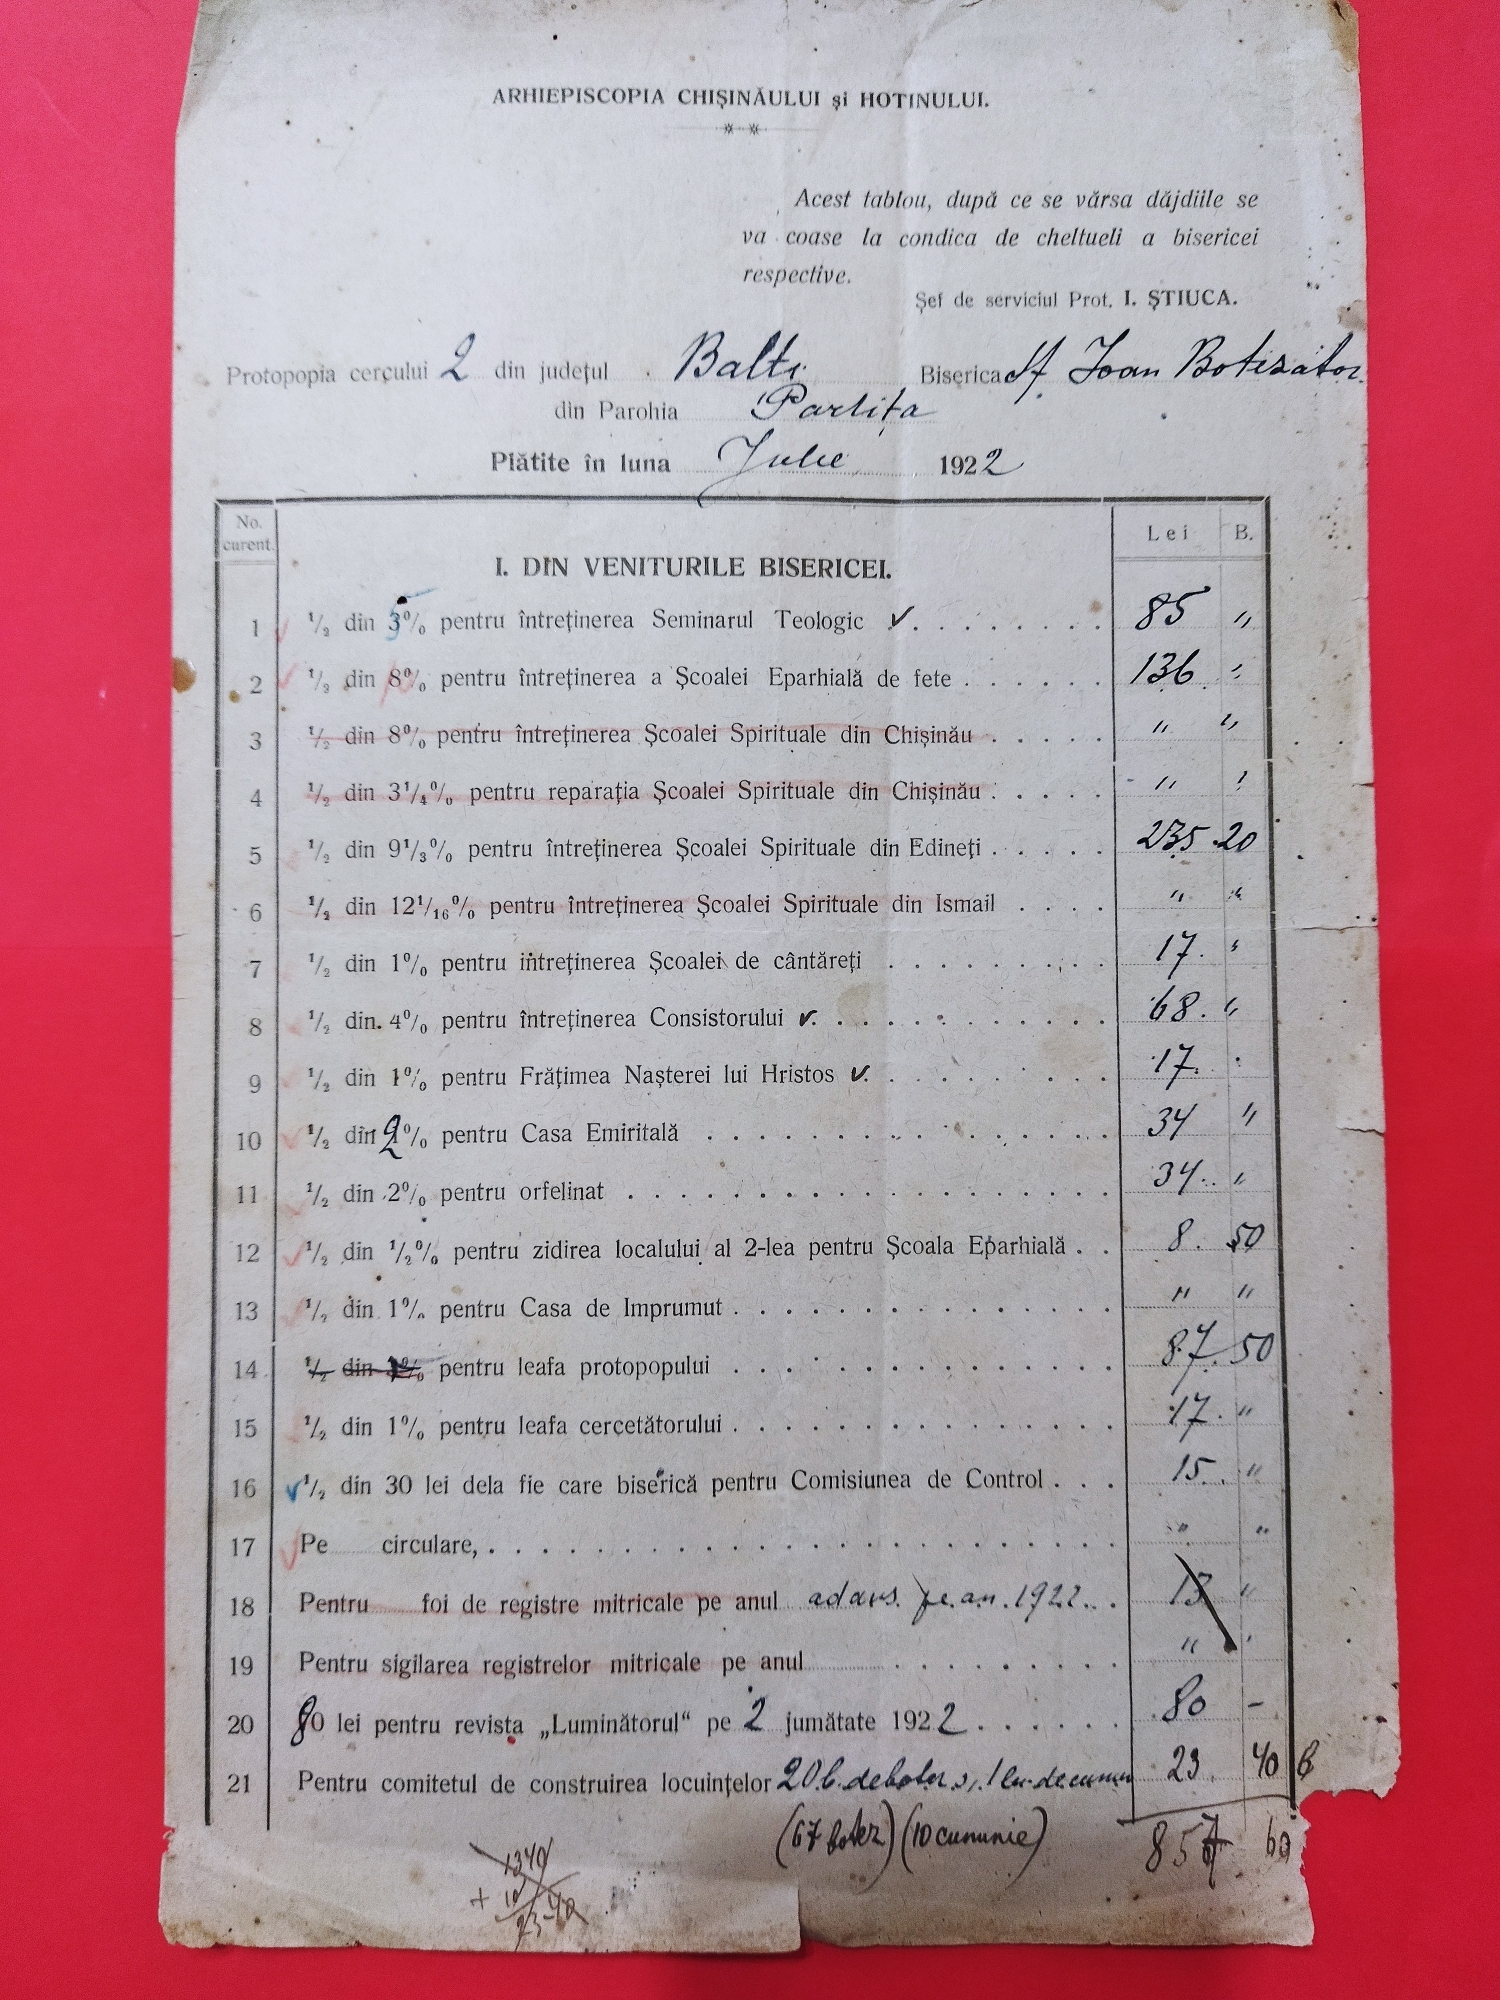 ARHIEPISCOPIA CHIȘINĂULUI și HOTINULUI.
Acest tablou, după ce se vărsa dăjdiile se
va coase la condica de cheltueli a bisericei
respective.
Șef de serviciul Prot. I. ȘTIUCA.
Protopopia cercului 2 din județul Balti Biserica Sf. Ioan Botezator
din Parohia Parlița
Plătite în luna Iulie 1922
No. curent. Lei B.
I. DIN VENITURILE BISERICEI.
1 ½ din 5% pentru întreținerea Seminarul Teologic ✓ 85 „
2 ½ din 8% pentru întreținerea a Școalei Eparhială de fete 136 „
3 ½ din 8% pentru întreținerea Școalei Spirituale din Chișinău „ „
4 ½ din 3¼% pentru reparația Școalei Spirituale din Chișinău „ „
5 ½ din 9⅓% pentru întreținerea Școalei Spirituale din Edineți 235 20
6 ½ din 12¹/₁₆% pentru întreținerea Școalei Spirituale din Ismail „ „
7 ½ din 1% pentru intreținerea Școalei de cântăreți 17 „
8 ½ din 4% pentru întreținerea Consistorului ✓ 68 „
9 ½ din 1% pentru Frățimea Nașterei lui Hristos ✓ 17
10 ½ din 2% pentru Casa Emiritală 34 „
11 ½ din 2% pentru orfelinat 34 „
12 ½ din ½% pentru zidirea localului al 2-lea pentru Școala Eparhială 8 50
13 ½ din 1% pentru Casa de Imprumut „ „
14 ½ din 1% pentru leafa protopopului 87 50
15 ½ din 1% pentru leafa cercetătorului 17 „
16 ½ din 30 lei dela fie care biserică pentru Comisiunea de Control 15 „
17 Pe circulare, „ „
18 Pentru foi de registre mitricale pe anul pe an. 1922 13 „
19 Pentru sigilarea registrelor mitricale pe anul „ „
20 80 lei pentru revista „Luminătorul“ pe 2 jumătate 1922 80 –
21 Pentru comitetul de construirea locuințelor 20 b. de botez și 1 leu de cunun 23 40
(67 botez) (10 cununie) 857 60
1340
+ 10
23 40